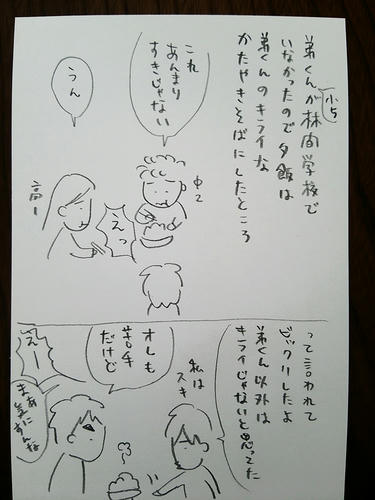 弟くんが林間学校で
小5
いなかったので夕飯は
弟くんのキライな
かたやきそばにしたところ
これ
あんまり
すきじゃない
うん
中2
高1
えっ
って言われて
ビックリしたよ
弟くん以外は
キライじゃないと思ってた
私は
スキ
オレも
苦手
だけど
えー
まあ気にすんな